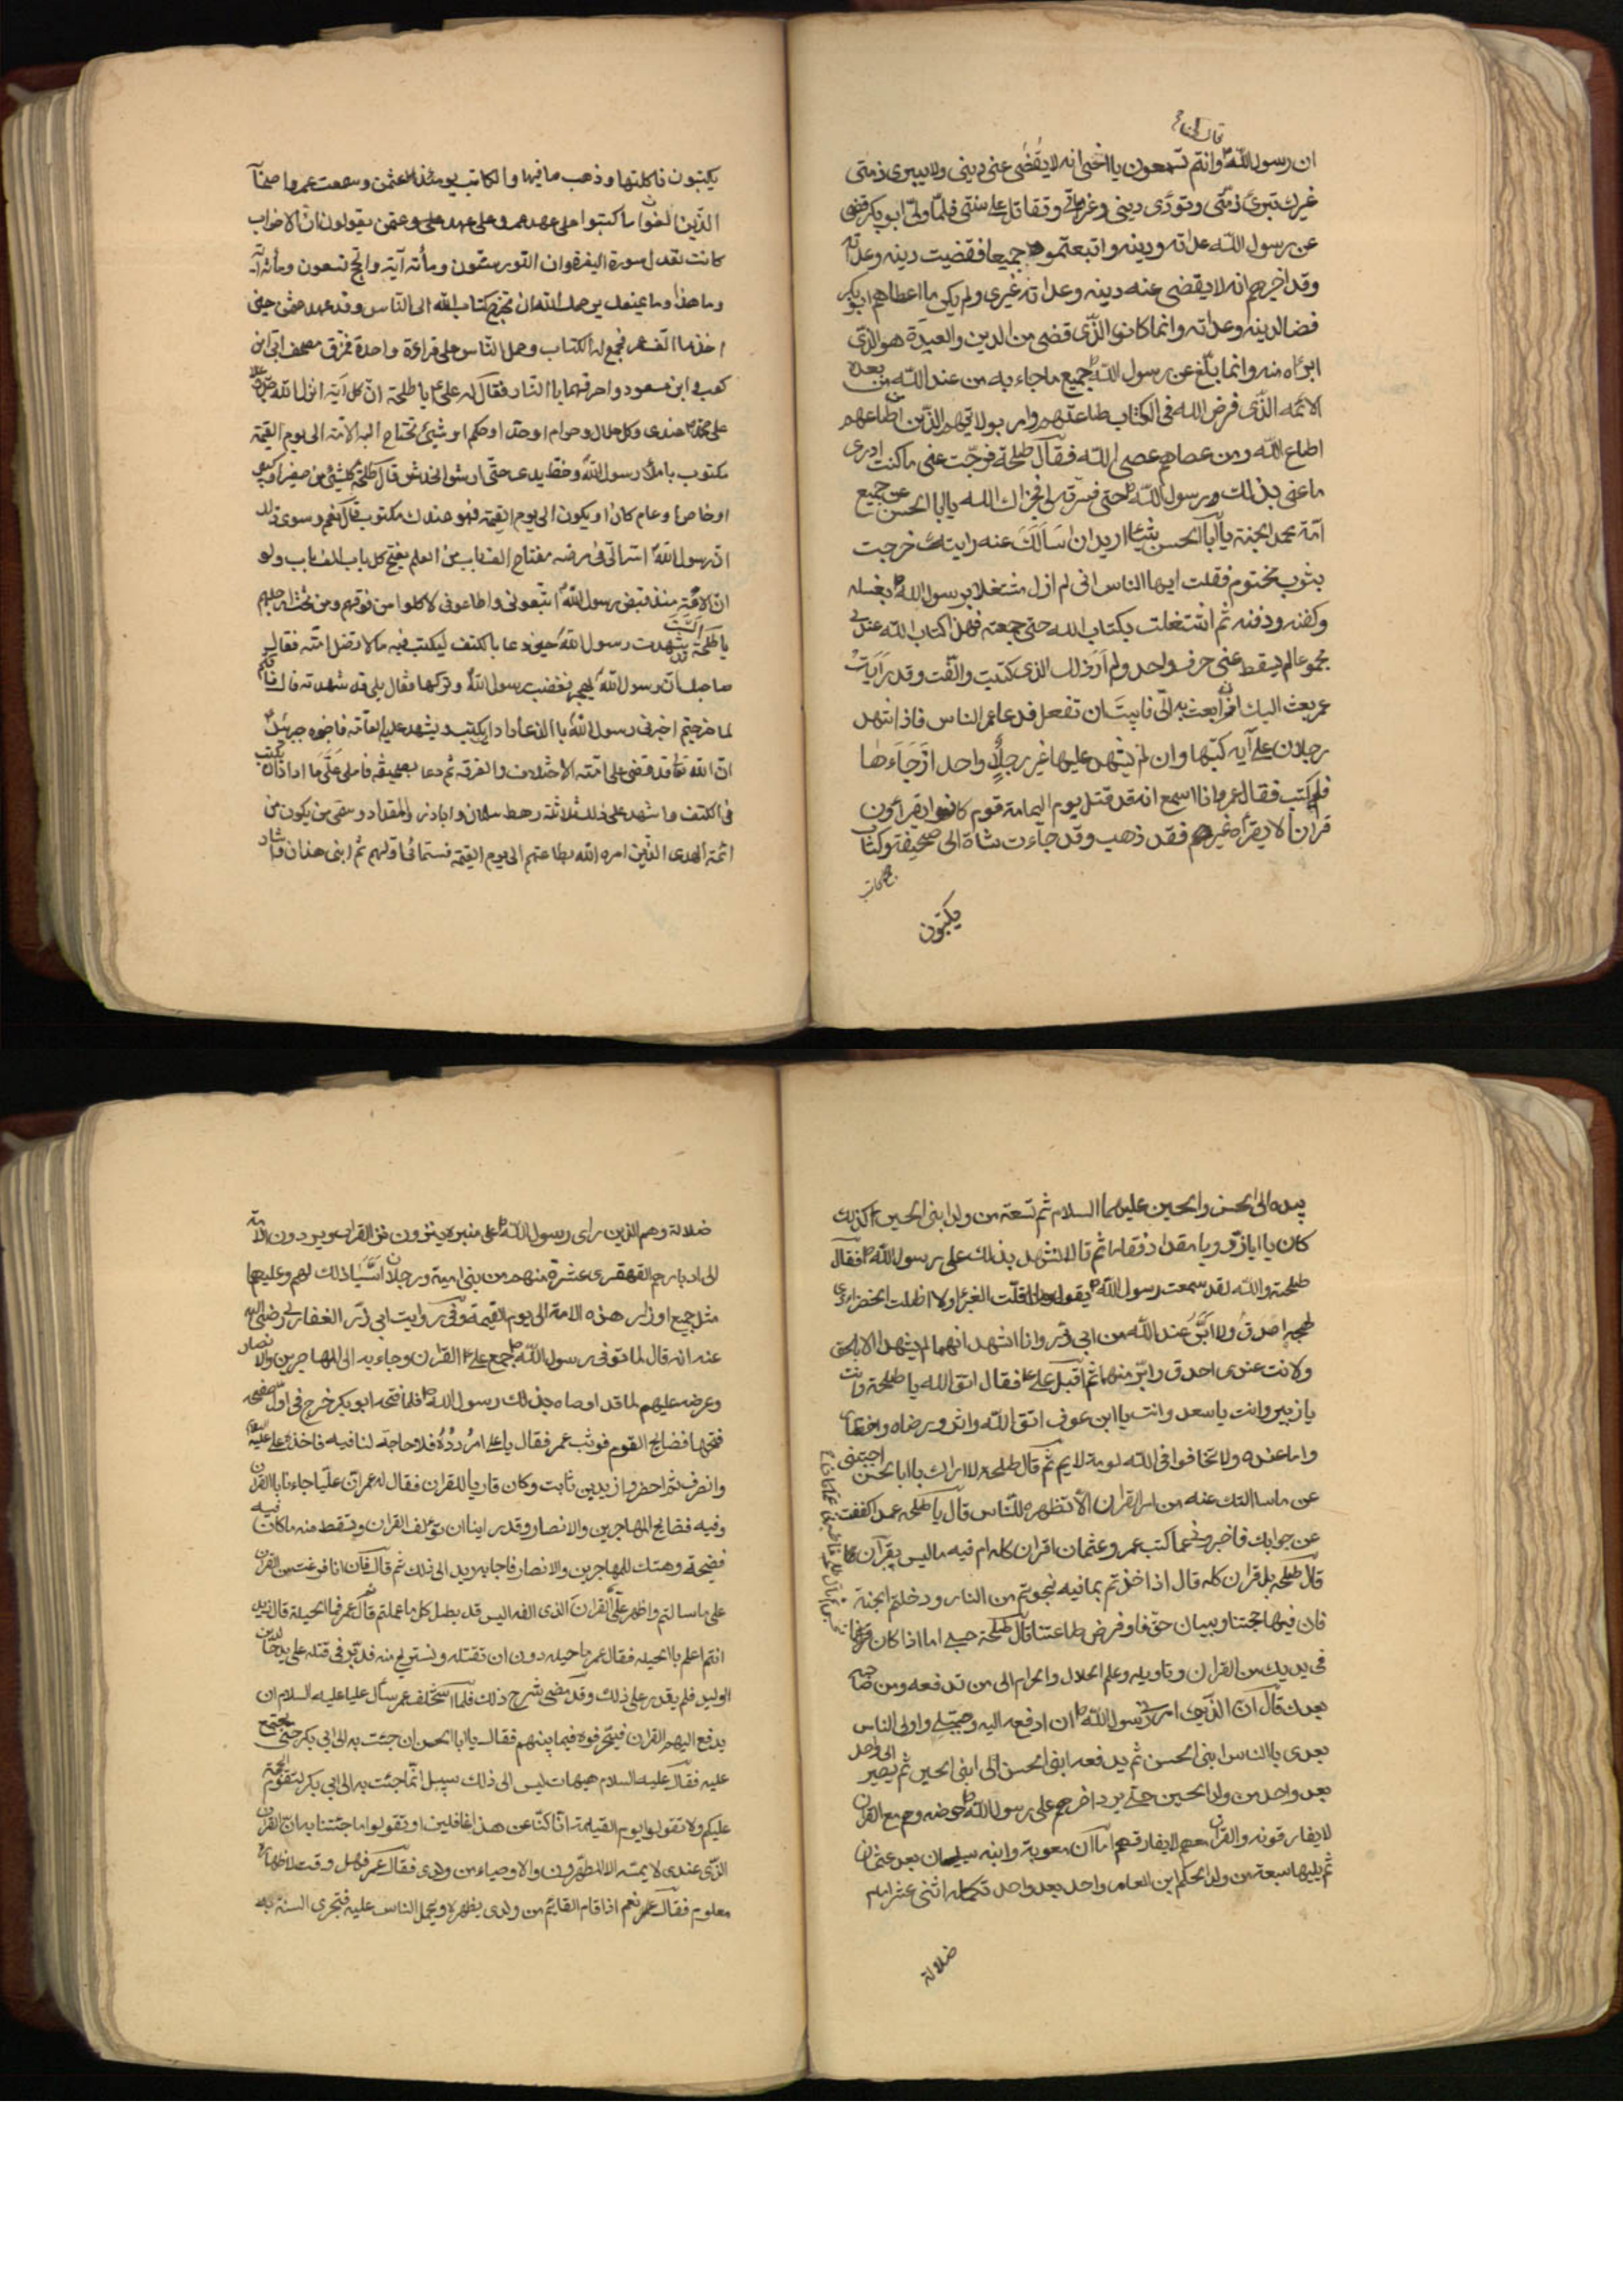 قال لجنا ح
ان رسول الله ص وانتم تسمعون يا اخى انه لا يقضى عنى دينى ولا يبرى ذمتى
غيرك تبرئ ذمتى وتودى دينى وغراماتى وتقاتل على سنتى فلما ولى ابو بكر قضى
عن رسول الله عداته ودينه واتبعتموه جميعا فقضيت دينه وعداته
وقد اخبرهم انه لا يقضى عنه دينه وعداته غيرى ولم يكن ما اعطاهم ابو بكر
قضا لدينه وعداته وانما كان الذى قضى من الدين والعدة هو الذى
ابرأه منه وانما بلغ عن رسول الله ص جميع ما جاء به من عند الله من بعده
الائمة الذى فرض الله فى الكتاب طاعتهم وامر بولايتهم الذين من اطاعهم
اطاع الله ومن عصاهم عصى الله فقال طلحة فرجت عنى ما كنت ادرى
ما عنى بذلك رسول الله ص حتى فسرته لى فجزاك الله يا ابا الحسن عن جميع
امة محمد الجنة يا ابا الحسن شيئا اريد ان اسالك عنه رايتك خرجت
بثوب مختوم فقلت ايها الناس انى لم ازل مشتغلا برسول الله ص بغسله
وكفنه ودفنه ثم اشتغلت بكتاب الله حتى جمعته فهذا كتاب الله عندى
مجموعا لم يسقط عنى حرف واحد ولم ار ذلك الذى كتبت والفت وقد رايت
عمر بعث اليك ان ابعث به الى فابيت ان تفعل فدعا عمر الناس فاذا شهد
رجلان على آيه كتبها وان لم يشهد عليها غير رجل واحد ارجاءها
فلم يكتب فقال عمر وانا اسمع انه قد قتل يوم اليمامة قوم كانوا يقراون
قرانا لا يقراه غيرهم فقد ذهب وقد جاءت شاة الى صحيفة وكتاب
يكتبون
يكتبون فاكلتها وذهب ما فيها والكاتب يومئذ عثمن وسمعت عمر واصحابه
الذين الفوا ما كتبوا على عهد عمر وعلى عهد عثمن يقولون ان الاحزاب
كانت تعدل سورة البقرة وان النور ستون ومأته آية والحج تسعون ومأته آية
وما هذا وما يمنعك يرحمك الله ان تخرج كتاب الله الى الناس وقد عهد عثمن حين
اخذ ما الف عمر فجمع له الكتاب وحمل الناس على قراءة واحدة فمزق مصحف ابى ابن
كعب وابن مسعود واحرقهما با النار فقال له على ع يا طلحة ان كل آية انزلها الله
على محمد ص عندى وكل حلال وحرام او حد او حكم او شيئ تحتاج اليه الامة الى يوم القيمة
مكتوب باملاء رسول الله ص وخط يدى حتى ارش الخدش قال طلحة كل شيئ من صغير او كبير
او خاص او عام كان او يكون الى يوم القيمة فهو عندك مكتوب قال نعم وسوى ذلك
ان رسول الله ص اسر الى فى مرضه مفتاح الف باب من العلم يفتح كل باب الف باب ولو
ان الامة منذ قبض رسول الله ص اتبعونى واطاعونى لاكلوا من فوقهم ومن تحت ارجلهم
يا طلحة الست قد شهدت رسول الله ص حين دعا بالكتف ليكتب فيه ما لا تضل امته فقال
صاحبك ان رسول الله يهجر فغضب رسول الله ص وتركها فقال بلى قد شهدته قال فانكم
لما خرجتم اخبرنى رسول الله ص بالذى اراد ان يكتب ويشهد عليه العامة فاخبره جبرئيل
ان الله تعا قد قضى على امته الاختلاف والفرقة ثم دعا بصحيفة فاملى على ما اراد ان يكتب
فى الكتف واشهد على ذلك ثلاثة رهط سلمان واباذر والمقداد وسمى من يكون من
ائمة الهدى الذين امره الله بطاعتهم الى يوم القيمة فسمانى اولهم ثم ابنى هذان واشار
بيده الى الحسن والحسين عليهما السلام ثم تسعة من ولد ابنى الحسين اكذلك
كان يا اباذر ويا مقداد فقاما ثم قالا نشهد بذلك على رسول الله ص فقال
طلحة والله لقد سمعت رسول الله ص يقول ما اقلت الغبراء ولا اظلت الخضراء ذى
لهجة اصدق ولا ابر عند الله من ابى ذر وانا اشهد انهما لم يشهدا الا بالحق
ولانت عندى اصدق وابر منهما ثم اقبل على ع فقال اتق الله يا طلحة وانت
يا زبير وانت يا سعد وانت يا ابن عوف اتق الله واثروا رضاه واختاروا
ما عنده ولا تخافوا فى الله لومة لايم ثم قال طلحة لا اراك يا ابا الحسن اجبتنى
عن ما سالتك عنه من امر القران الا تظهره للناس قال يا طلحة عمدا كففت
عن جوابك فاخبرونى عما كتب عمر وعثمان اقران كله ام فيه ما ليس بقرآن
قال طلحة بل قران كله قال اذا اخذتم بما فيه نجوتم من النار ودخلتم الجنة
فان فيها حجتنا وبيان حقنا وفرض طاعتنا قال طلحة حسبى اما اذا كان قرانا
فى يديك من القران وتاويله وعلم الحلال والحرام الى من تدفعه ومن صاحبه
بعدك قال ان الذى امرنى رسول الله ص ان ادفعه اليه وصيى واولى الناس
بعدى با الناس ابنى الحسن ثم يدفعه ابنى الحسن الى ابنى الحسين ثم يصير الى واحد
بعد واحد من ولد الحسين حتى يرد اخرهم على رسول الله ص حوضه وهم مع القران
لا يفارقونه والقران معهم لا يفارقهم اما ان معوية وابنه سيليان بعد عثمان
ثم يليها سبعة من ولد الحكم ابن العاص واحد بعد واحد تكمله اثنى عشر امام
ضلالة
ضلالة وهم الذين راى رسول الله ص على منبره ينزون نزو القراب ويردون الامة
الى ادبارهم القهقرى عشرة منهم من بنى امية ورجلان اسسا ذلك لهم وعليهما
مثل جميع اوزار هذه الامة الى يوم القيمة وفى روايت ابى ذر الغفارى رضى الله
عنه انه قال لما توفى رسول الله ص جمع على ع القران وجاء به الى المهاجرين والانصار
وعرضه عليهم لما قد اوصاه بذلك رسول الله ص فلما فتحه ابو بكر خرج فى اول صفحه
فتحها فضايح القوم فوثب عمر فقال يا على اردده فلا حاجة لنا فيه فاخذه على عليه السلام
وانصرف ثم احضروا زيد بن ثابت وكان قاريا للقران فقال له عمر ان عليا جاءنا بالقران
وفيه فضايح المهاجرين والانصار وقد راينا ان تؤلف القران وتسقط منه ما كان فيه
فضيحة وهتك للمهاجرين والانصار فاجابه زيد الى ذلك ثم قال فان انا فرغت من القران
على ما سالتم واظهر على القران الذى الفه اليس قد بطل كل ما عملتم ثم قال عمر فما الحيلة قال زيد
انتم اعلم با الحيله فقال عمر ما حيله دون ان تقتله ونستريح منه فدبر فى قتله على يد خالد بن
الوليد فلم يقدر على ذلك وقد مضى شرح ذلك فلما استخلف عمر سأل عليا عليه السلام ان
يدفع اليهم القران فيحرفوه فيما بينهم فقال يا ابا الحسن ان جئت به الى ابى بكر حتى نجتمع
عليه فقال عليه السلام هيهات ليس الى ذلك سبيل انما جئت به الى ابى بكر لتقوم الحجة
عليكم ولا تقولوا يوم القيمة انا كنا عن هذا غافلين او تقولوا ما جئتنا به ان القران
الذى عندى لا يمسه الا المطهرون والاوصياء من ولدى فقال عمر فهل وقت لاظهاره
معلوم فقال عمر نعم اذا قام القايم من ولدى يظهره ويحمل الناس عليه فتجرى السنة به